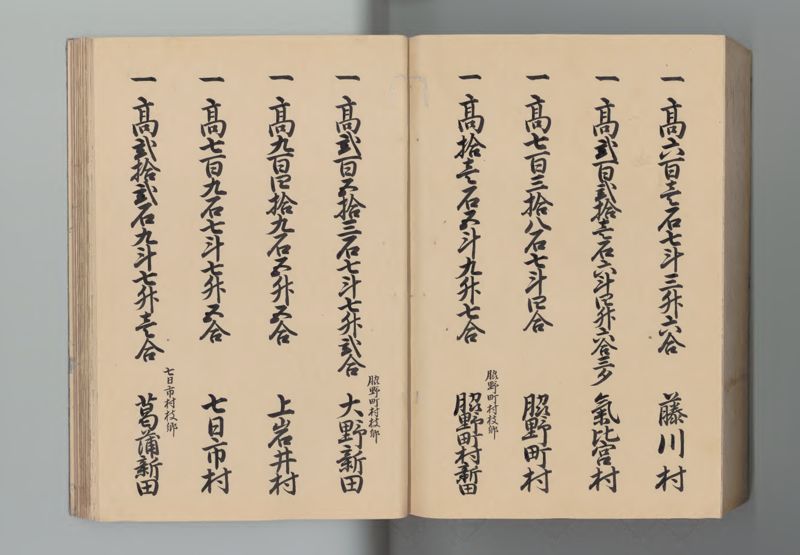 一高六百壱石七斗三升六合　藤川村
一高弐百弐拾壱石六斗四升六合三夕　氣比宮村
一高七百三拾八石七斗四合　脇野町村
脇野町村枝郷
一高拾壱石五斗九升七合　脇野町村新田
脇野町村枝郷
一高弐百五拾三石七斗七升弐合　大野新田
一高九百四拾九石五升五合　上岩井村
一高七百九石七斗七升五合　七日市村
七日市村枝郷
一高弐拾弐石九斗七升壱合　菖蒲新田